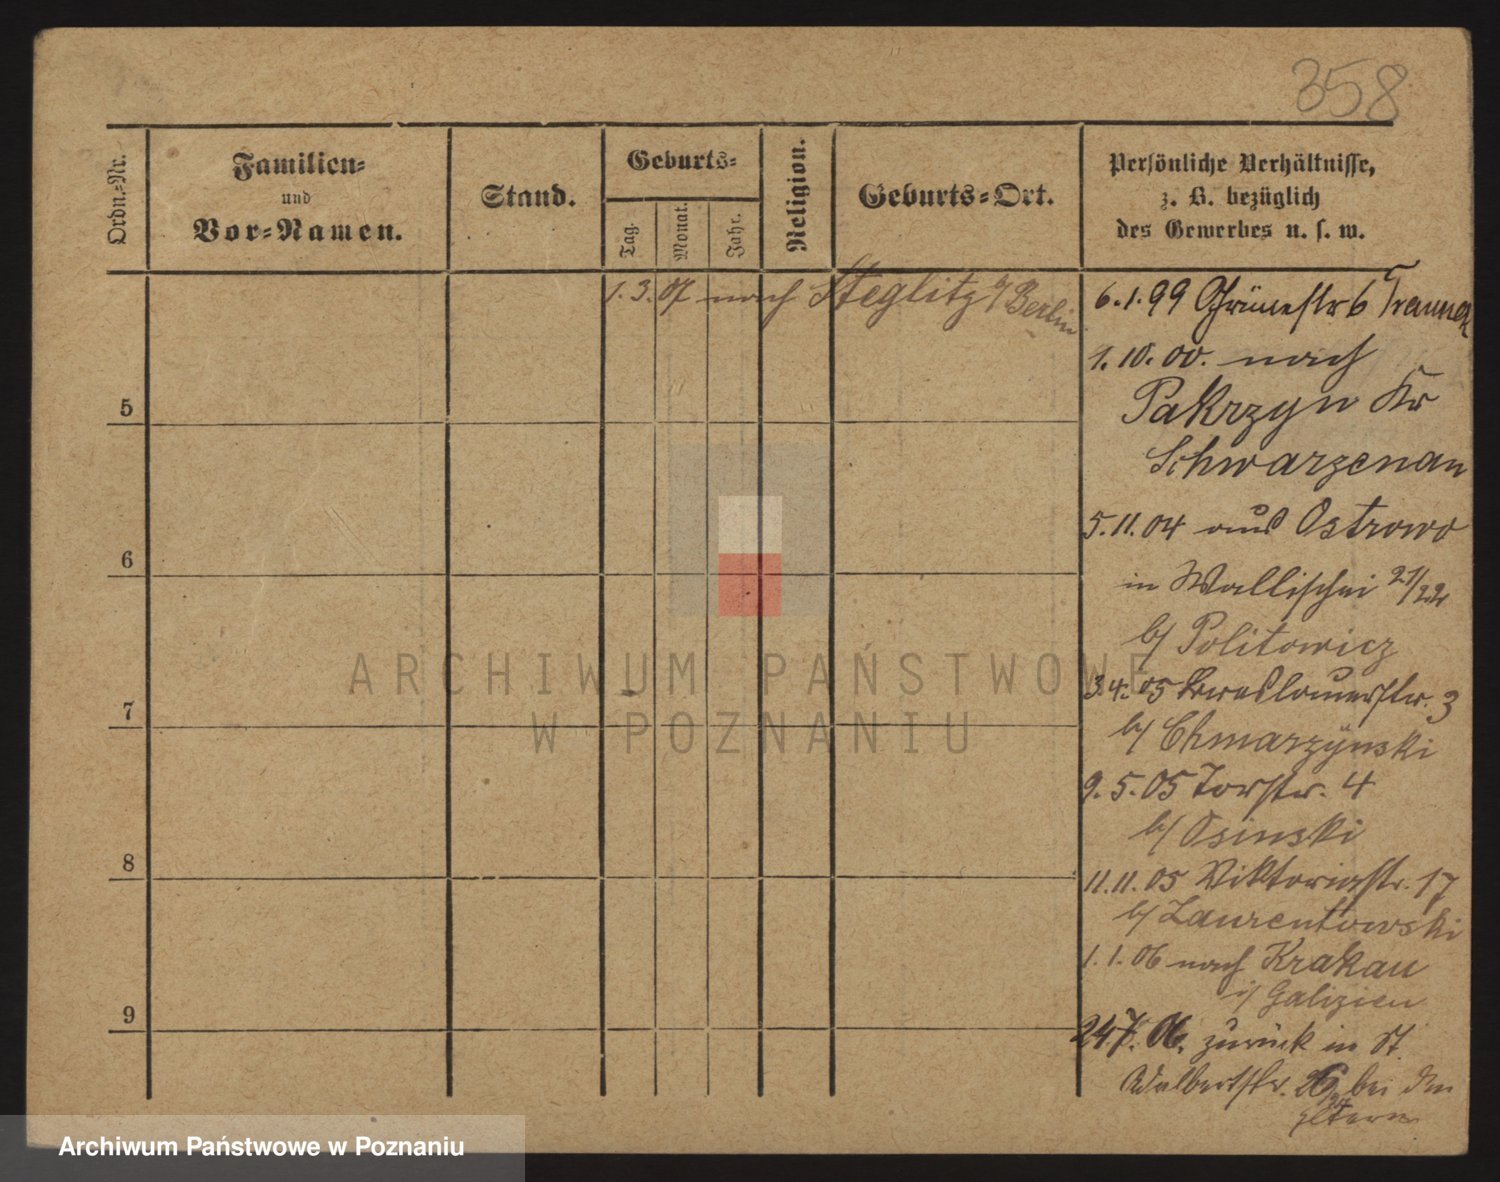 358
Ordn.-Nr.
Familien-
und
Vor-Namen.
Stand.
Geburts-
Tag.
Monat.
Jahr.
Religion.
Geburts-Ort.
Persönliche Verhältnisse,
z. B. bezüglich
des Gewerbes u. s. w.
1.3.07 nach Steglitz b/ Berlin
6.1.99 Grünestr 6
1.10.00. nach
Pakrzyn Kr
Schwarzenau
5.11.04 aus Ostrowo
in Wallischei 21/22
b/ Politowicz
3.4.05 Breslauerstr. 3
b/ Chmarzynski
9.5.05 Torstr. 4
b/ Osinski
11.11.05 Viktoriastr. 17
b/ Laurentowski
1.1.06 nach Krakau
i/ Galizien
24.7.06. zurück in St.
Adalbertstr. 26 bei den
Eltern
5
6
7
8
9
ARCHIWUM PAŃSTWOWE
W POZNANIU
Archiwum Państwowe w Poznaniu